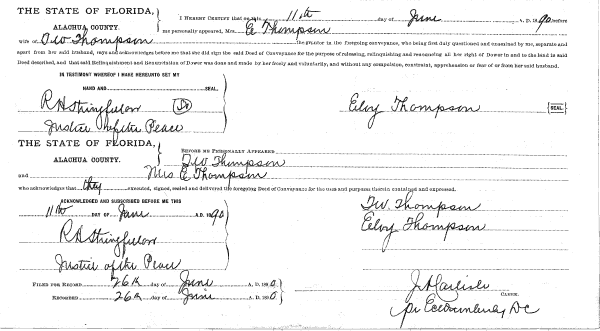 THE STATE OF FLORIDA,
ALACHUA COUNTY.
I HEREBY CERTIFY that on this 11th day of June A. D. 1890, before
me personally appeared, Mrs. E Thompson
wife of Thompson the grantor in the foregoing conveyance, who being first duly questioned and examined by me, separate and
apart from her said husband, says and acknowledges before me that she did sign the said Deed of Conveyance for the purpose of releasing, relinquishing and renouncing all her right of Dower in and to the land in said
Deed described, and that said Relinquishment and Renunciation of Dower was done and made by her freely and voluntarily, and without any compulsion, constraint, apprehension or fear of or from her said husband.
IN TESTIMONY WHEREOF I HAVE HEREUNTO SET MY
HAND AND SEAL.
R H Stringfellow
Justice of the Peace
Thompson SEAL.
THE STATE OF FLORIDA,
ALACHUA COUNTY.
BEFORE ME PERSONALLY APPEARED
Thompson
and Mrs E Thompson
who acknowledge that they executed, signed, sealed and delivered the foregoing Deed of Conveyance for the uses and purposes therein contained and expressed.
ACKNOWLEDGED AND SUBSCRIBED BEFORE ME THIS
11th DAY OF June A. D. 1890
R H Stringfellow
Justice of the Peace
Thompson
Thompson
FILED FOR RECORD 26th day of June A. D. 1890
RECORDED 26th day of June A. D. 1890
J A Carlisle
CLERK.
pr DC